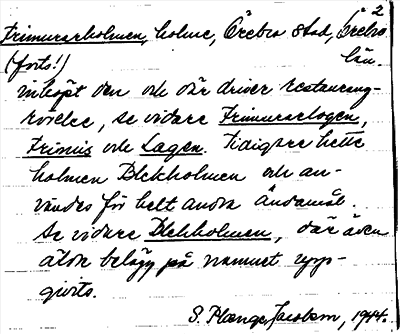 2
Frimurarholmen, holme, Örebro stad, Örebro
(forts!) län.
inköpt den och där driver restaurang-
rörelse, se vidare Frimurarlogen,
Frimis och Lagen. Tidigare hette
holmen Blekholmen och an-
vändes för helt andra ändamål.
Se vidare Blekholmen, där även
äldre belägg på namnet upp-
givits.
S. Jacobson, 1944.